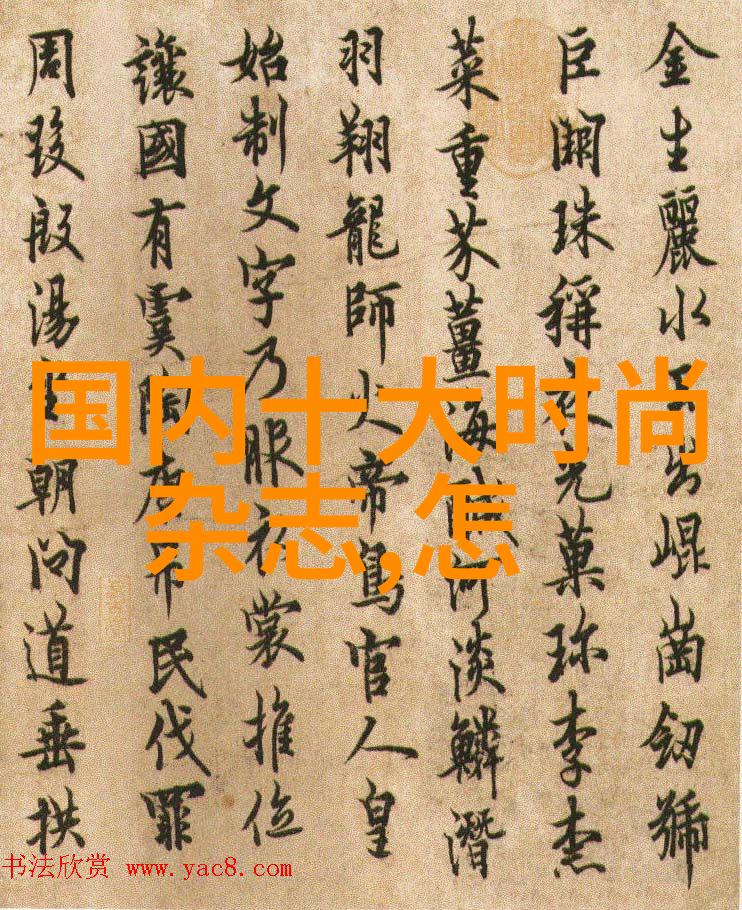 金生麗水出崐崗劒號
巨闕珠稱夜光菓珍李柰
菜重芥薑海河淡鱗潛
羽翔龍師火帝鳥官人皇
始制文字乃服衣裳推位
讓國有虞陶唐弔民伐罪
周發殷湯坐朝問道垂拱
国内十大时尚
杂志,怎
书法欣赏 www.yac8.com